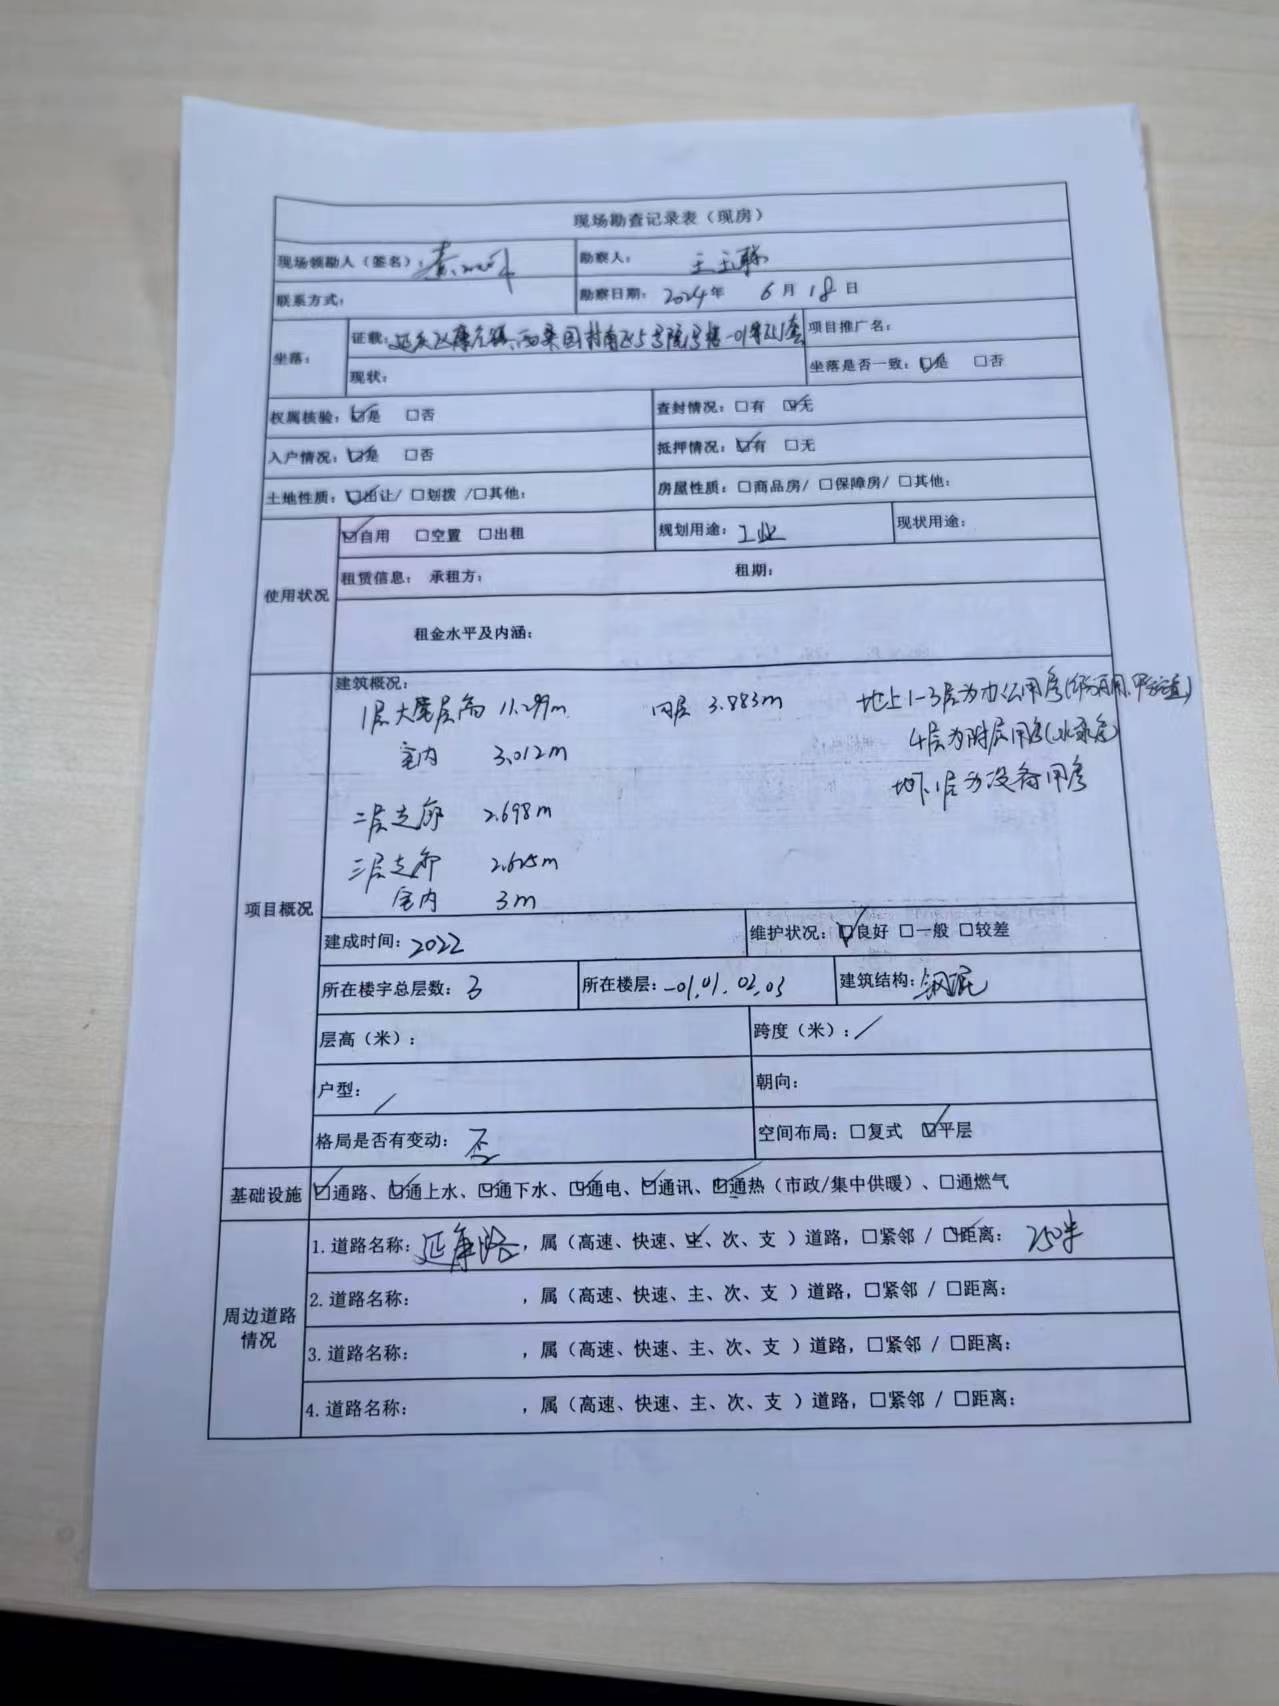 现场勘查记录表（现房）
现场领勘人（签名）： 勘察人： 王玉
联系方式： 勘察日期： 2024年 6月 18日
坐落： 证载： 延庆区康庄镇 西桑园村南区5号院 号楼-01 项目推广名：
现状： 坐落是否一致：☑是 □否
权属核验：☑是 □否 查封情况：□有 ☑无
入户情况：☑是 □否 抵押情况：☑有 □无
土地性质：☑出让/ □划拨 /□其他： 房屋性质：□商品房/ □保障房/ □其他：
使用状况 ☑自用 □空置 □出租 规划用途： 工业 现状用途：
租赁信息： 承租方： 租期：
租金水平及内涵：
项目概况 建筑概况：
1层大堂层高 11.299m 内层 3.883m 地上1-3层为办公用房
室内 3.012m 4层为附属用房(水泵房)
地下1层为设备用房
二层走廊 2.698m
三层走廊 2.625m
室内 3m
建成时间： 2022 维护状况：☑良好 □一般 □较差
所在楼宇总层数： 3 所在楼层： -01.01.02.03 建筑结构： 钢混
层高（米）： 跨度（米）： /
户型： / 朝向：
格局是否有变动： 否 空间布局：□复式 ☑平层
基础设施 ☑通路、☑通上水、☑通下水、☑通电、☑通讯、☑通热（市政/集中供暖）、□通燃气
周边道路情况 1.道路名称： 延康路 ，属（高速、快速、主、次、支 ）道路，□紧邻 / ☑距离： 250米
2.道路名称： ，属（高速、快速、主、次、支 ）道路，□紧邻 / □距离：
3.道路名称： ，属（高速、快速、主、次、支 ）道路，□紧邻 / □距离：
4.道路名称： ，属（高速、快速、主、次、支 ）道路，□紧邻 / □距离：